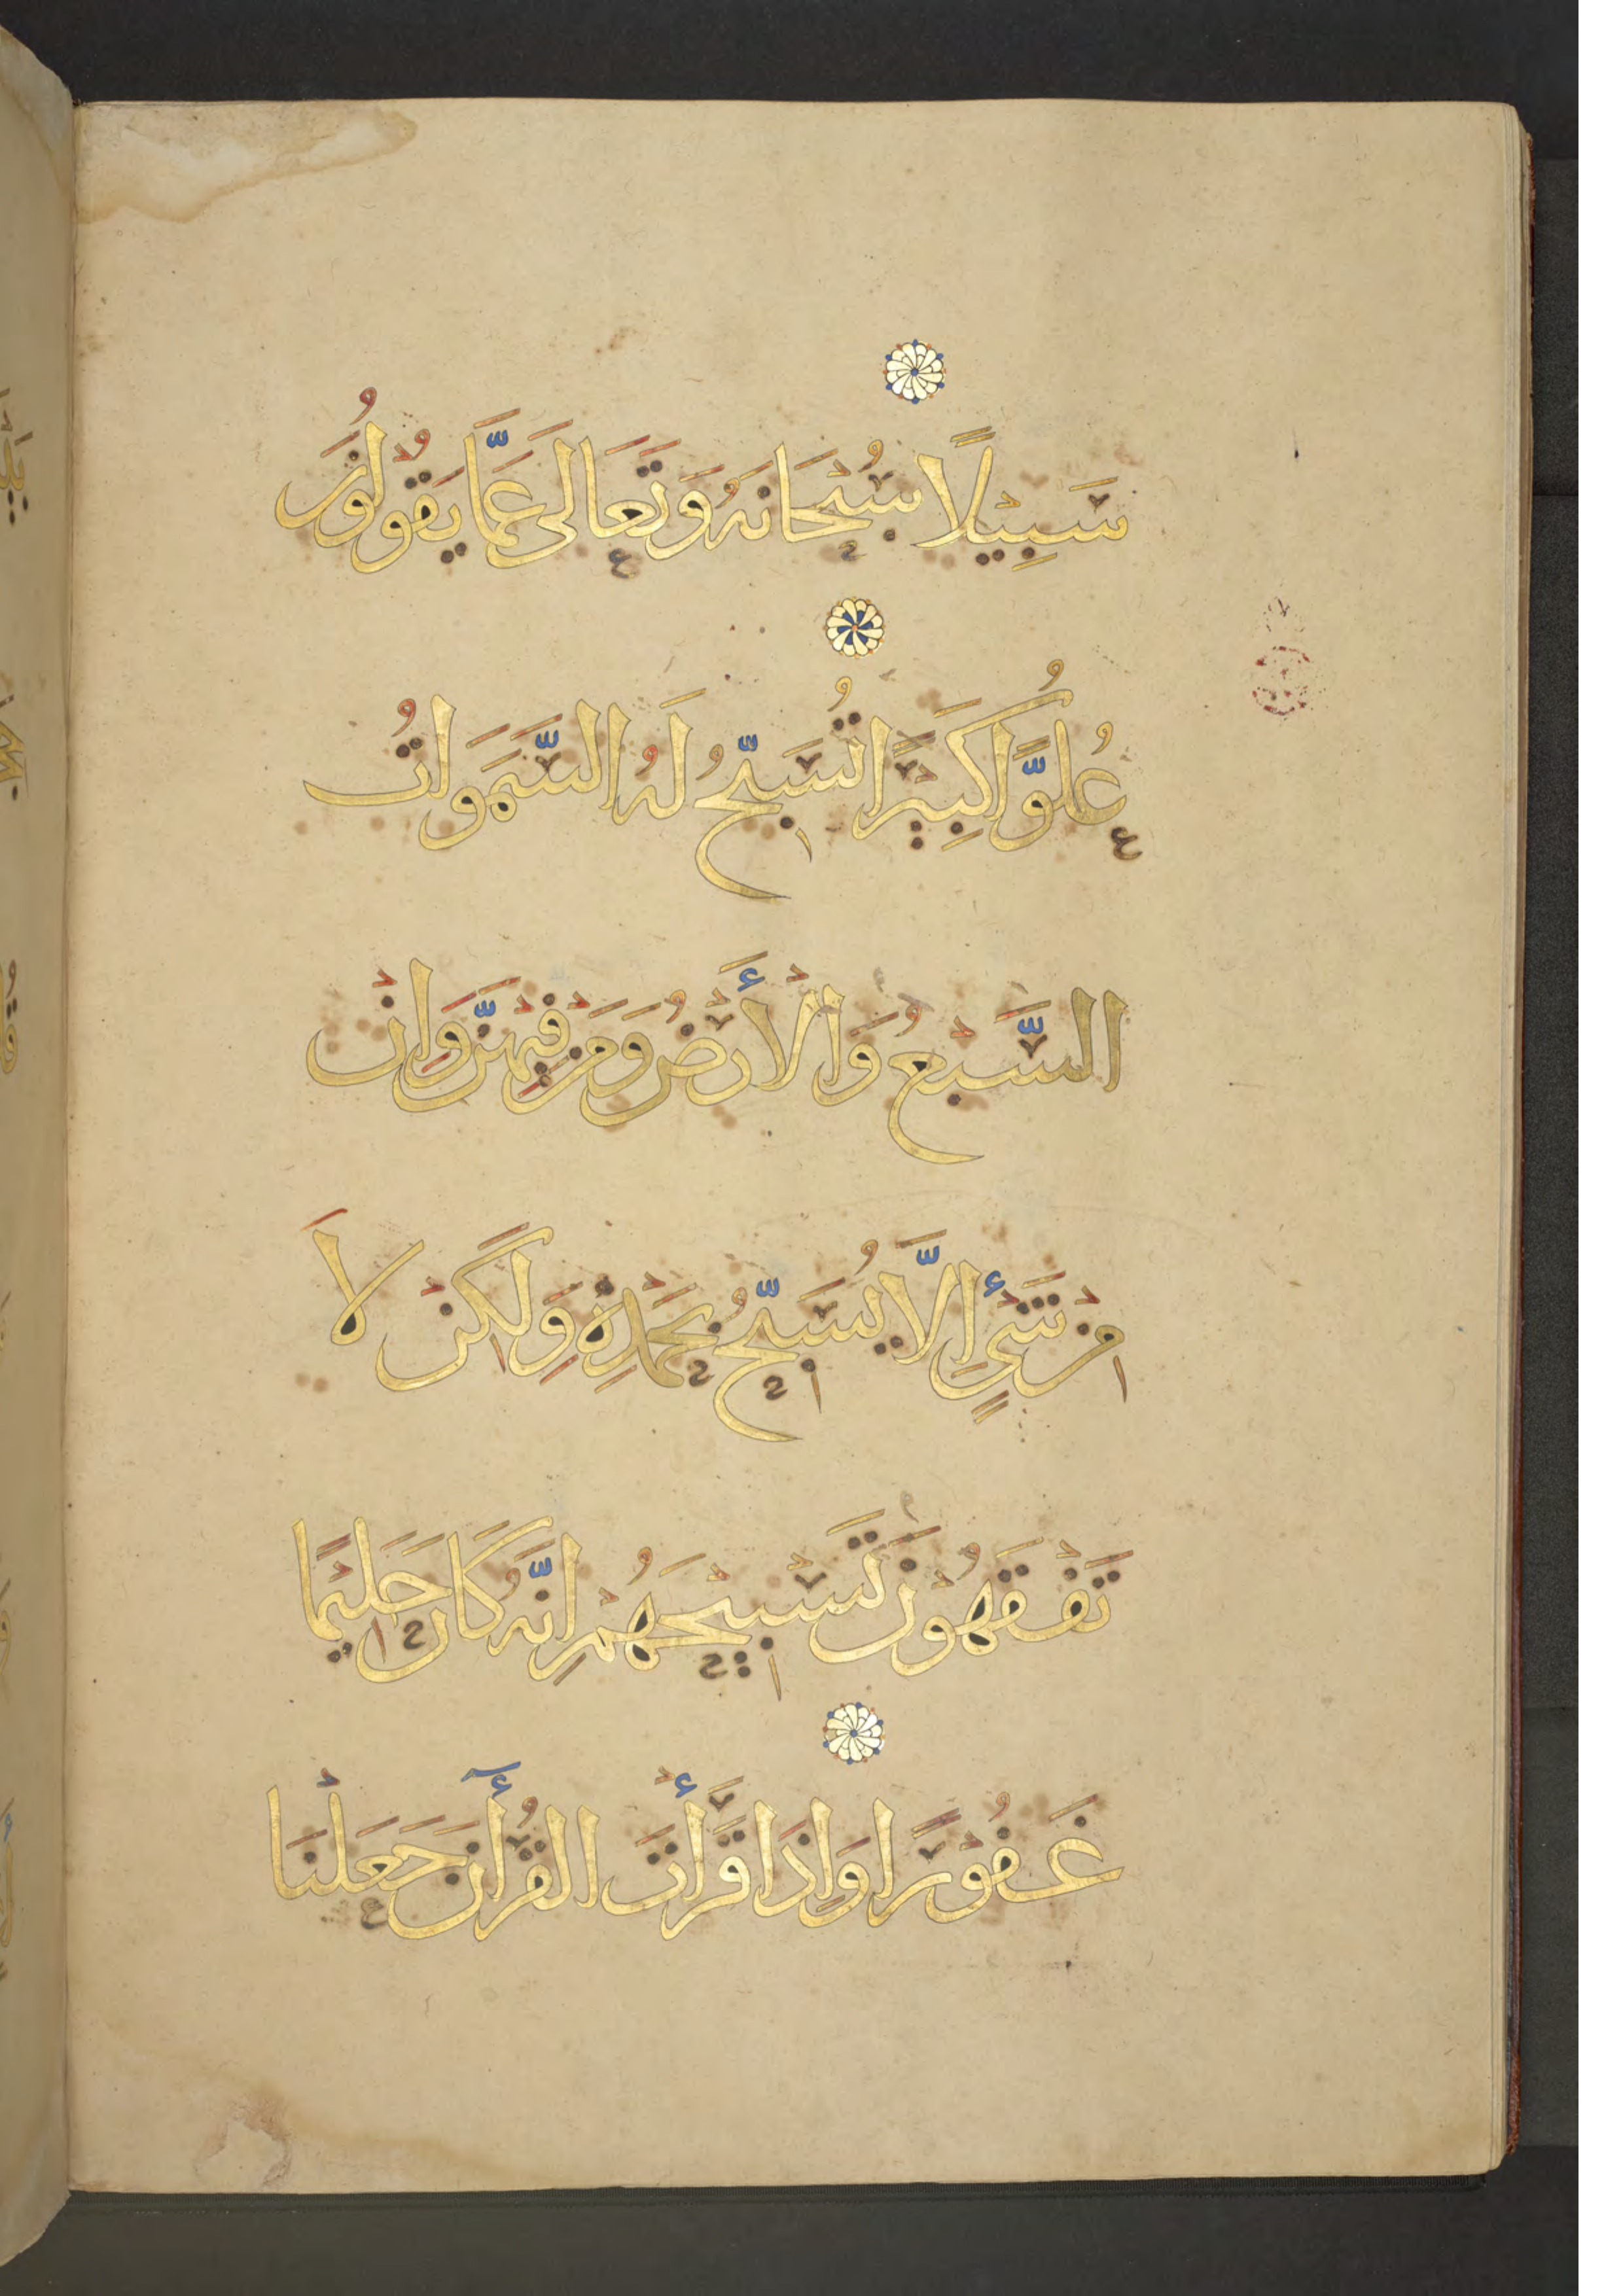 سَبِيْلًا سُبْحَانَهُ وَتَعَالَى عَمَّا يَقُوْلُوْنَ
عُلُوًّا كَبِيْرًا تُسَبِّحُ لَهُ السَّمَوَاتُ
السَّبْعُ وَالْأَرْضُ وَمَنْ فِيْهِنَّ وَاِنْ
مِنْ شَيْءٍ اِلَّا يُسَبِّحُ بِحَمْدِهِ وَلَكِنْ لَا
تَفْقَهُوْنَ تَسْبِيْحَهُمْ اِنَّهُ كَانَ حَلِيْمًا
غَفُوْرًا وَاِذَا قَرَأْتَ الْقُرْأٓنَ جَعَلْنَا